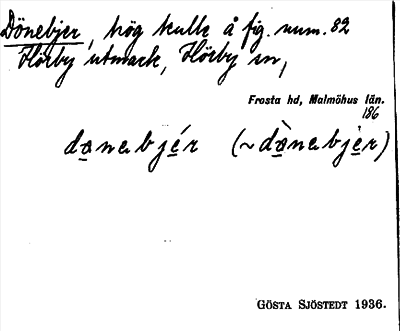 Dönebjer, hög kulle å fig. num. 82
Hörby utmark, Hörby sn,
Frosta hd, Malmöhus län.
186
danabjér (~dànabjèr)
GÖSTA SJÖSTEDT 1936.